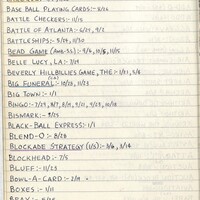 BASE BALL PLAYING CARDS:- 8/26
BATTLE CHECKERS:- 11/15
BATTLE OF ATLANTA:- 6/27, 9/5
BATTLESHIPS:- 5/29, 11/30
BEAD GAME
BELLE LUCY, LA:- 7/29
BEVERLY HILLBILLIES GAME, THE:- 1/21, 3/6
BIG FUNERAL:- 10/23, 11/23
BIG TOWN:- 1/1
BINGO:-
BISMARK:- 9/25
BLACK-BALL EXPRESS:- 1/1
BLEND-O:- 8/28
BLOCKADE STRATEGY (1/5):- 3/6, 3/14
BLOCKHEAD:- 7/5
BLUFF:- 11/23
BOWL-A-CARD:- 2/19
BOXES:- 1/11